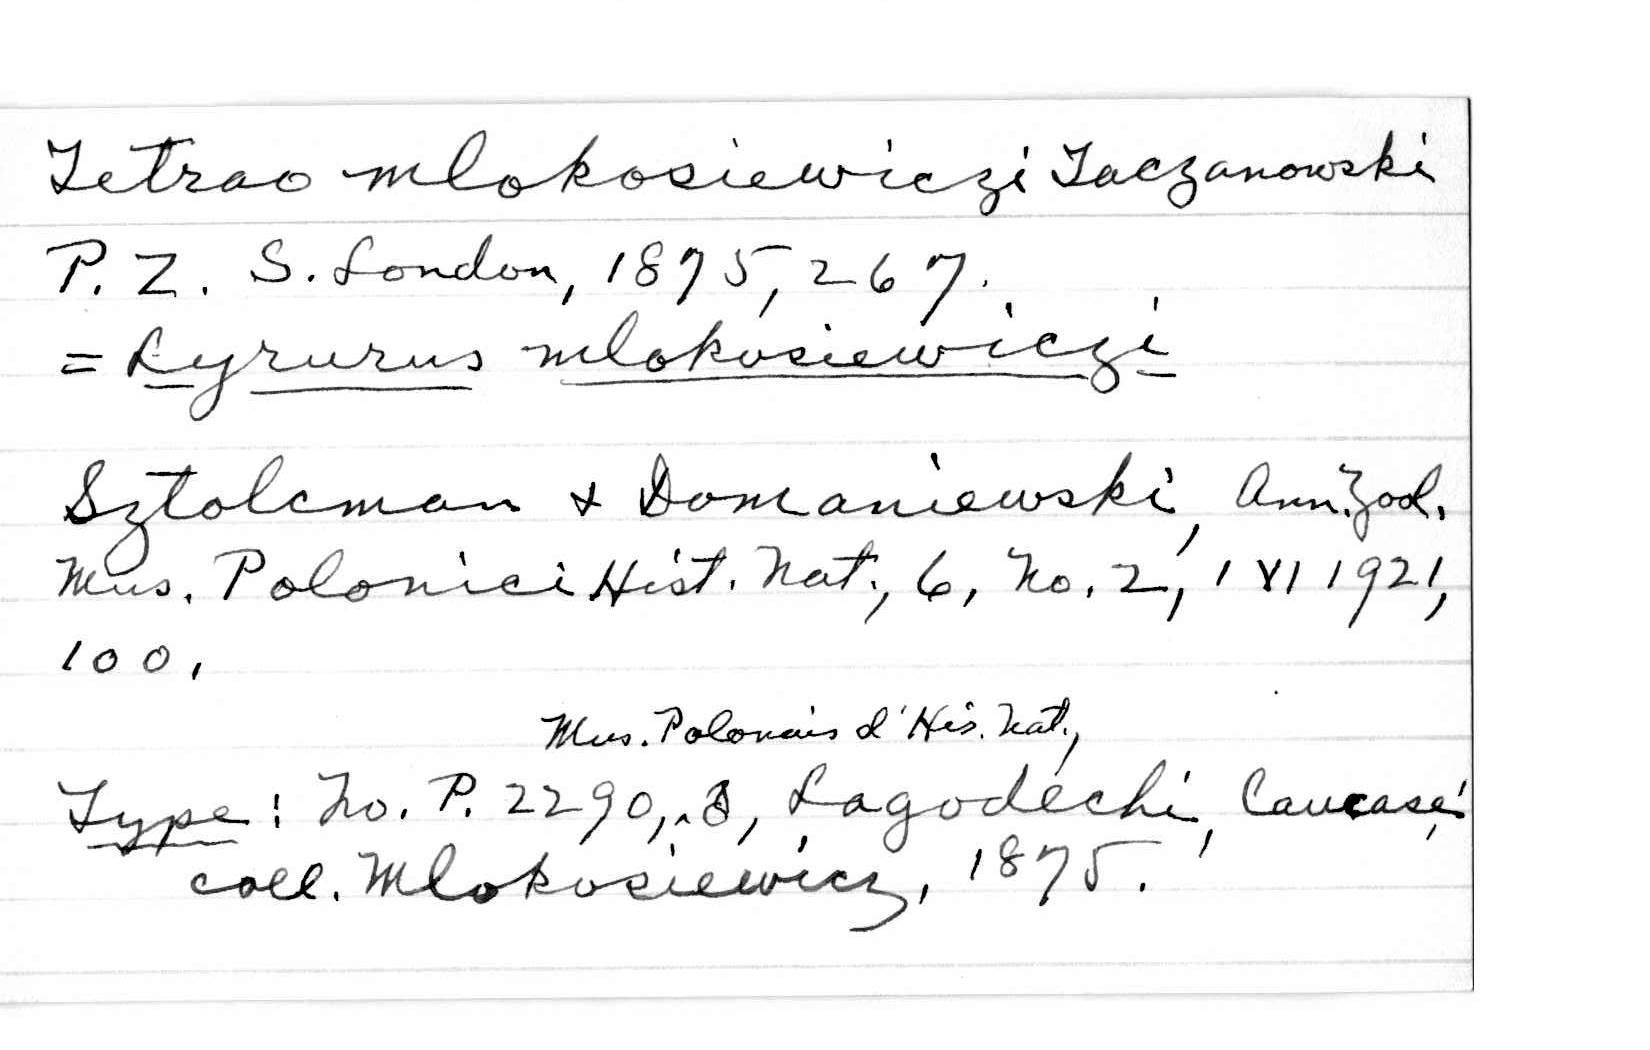 Tetrao mlokosiewiczi Taczanowski
P. Z. S. London, 1875, 267.
= Lyrurus mlokosiewiczi
Sztolcman & Domaniewski, Ann. Zool.
Mus. Polonici Hist. Nat., 6, No. 2, 1 VI 1921,
100,
Mus. Polonais d'His. Nat.,
Type: No. P. 2290, ♂, Lagodéchi, Caucase,
coll. Mlokosiewicz, 1875.